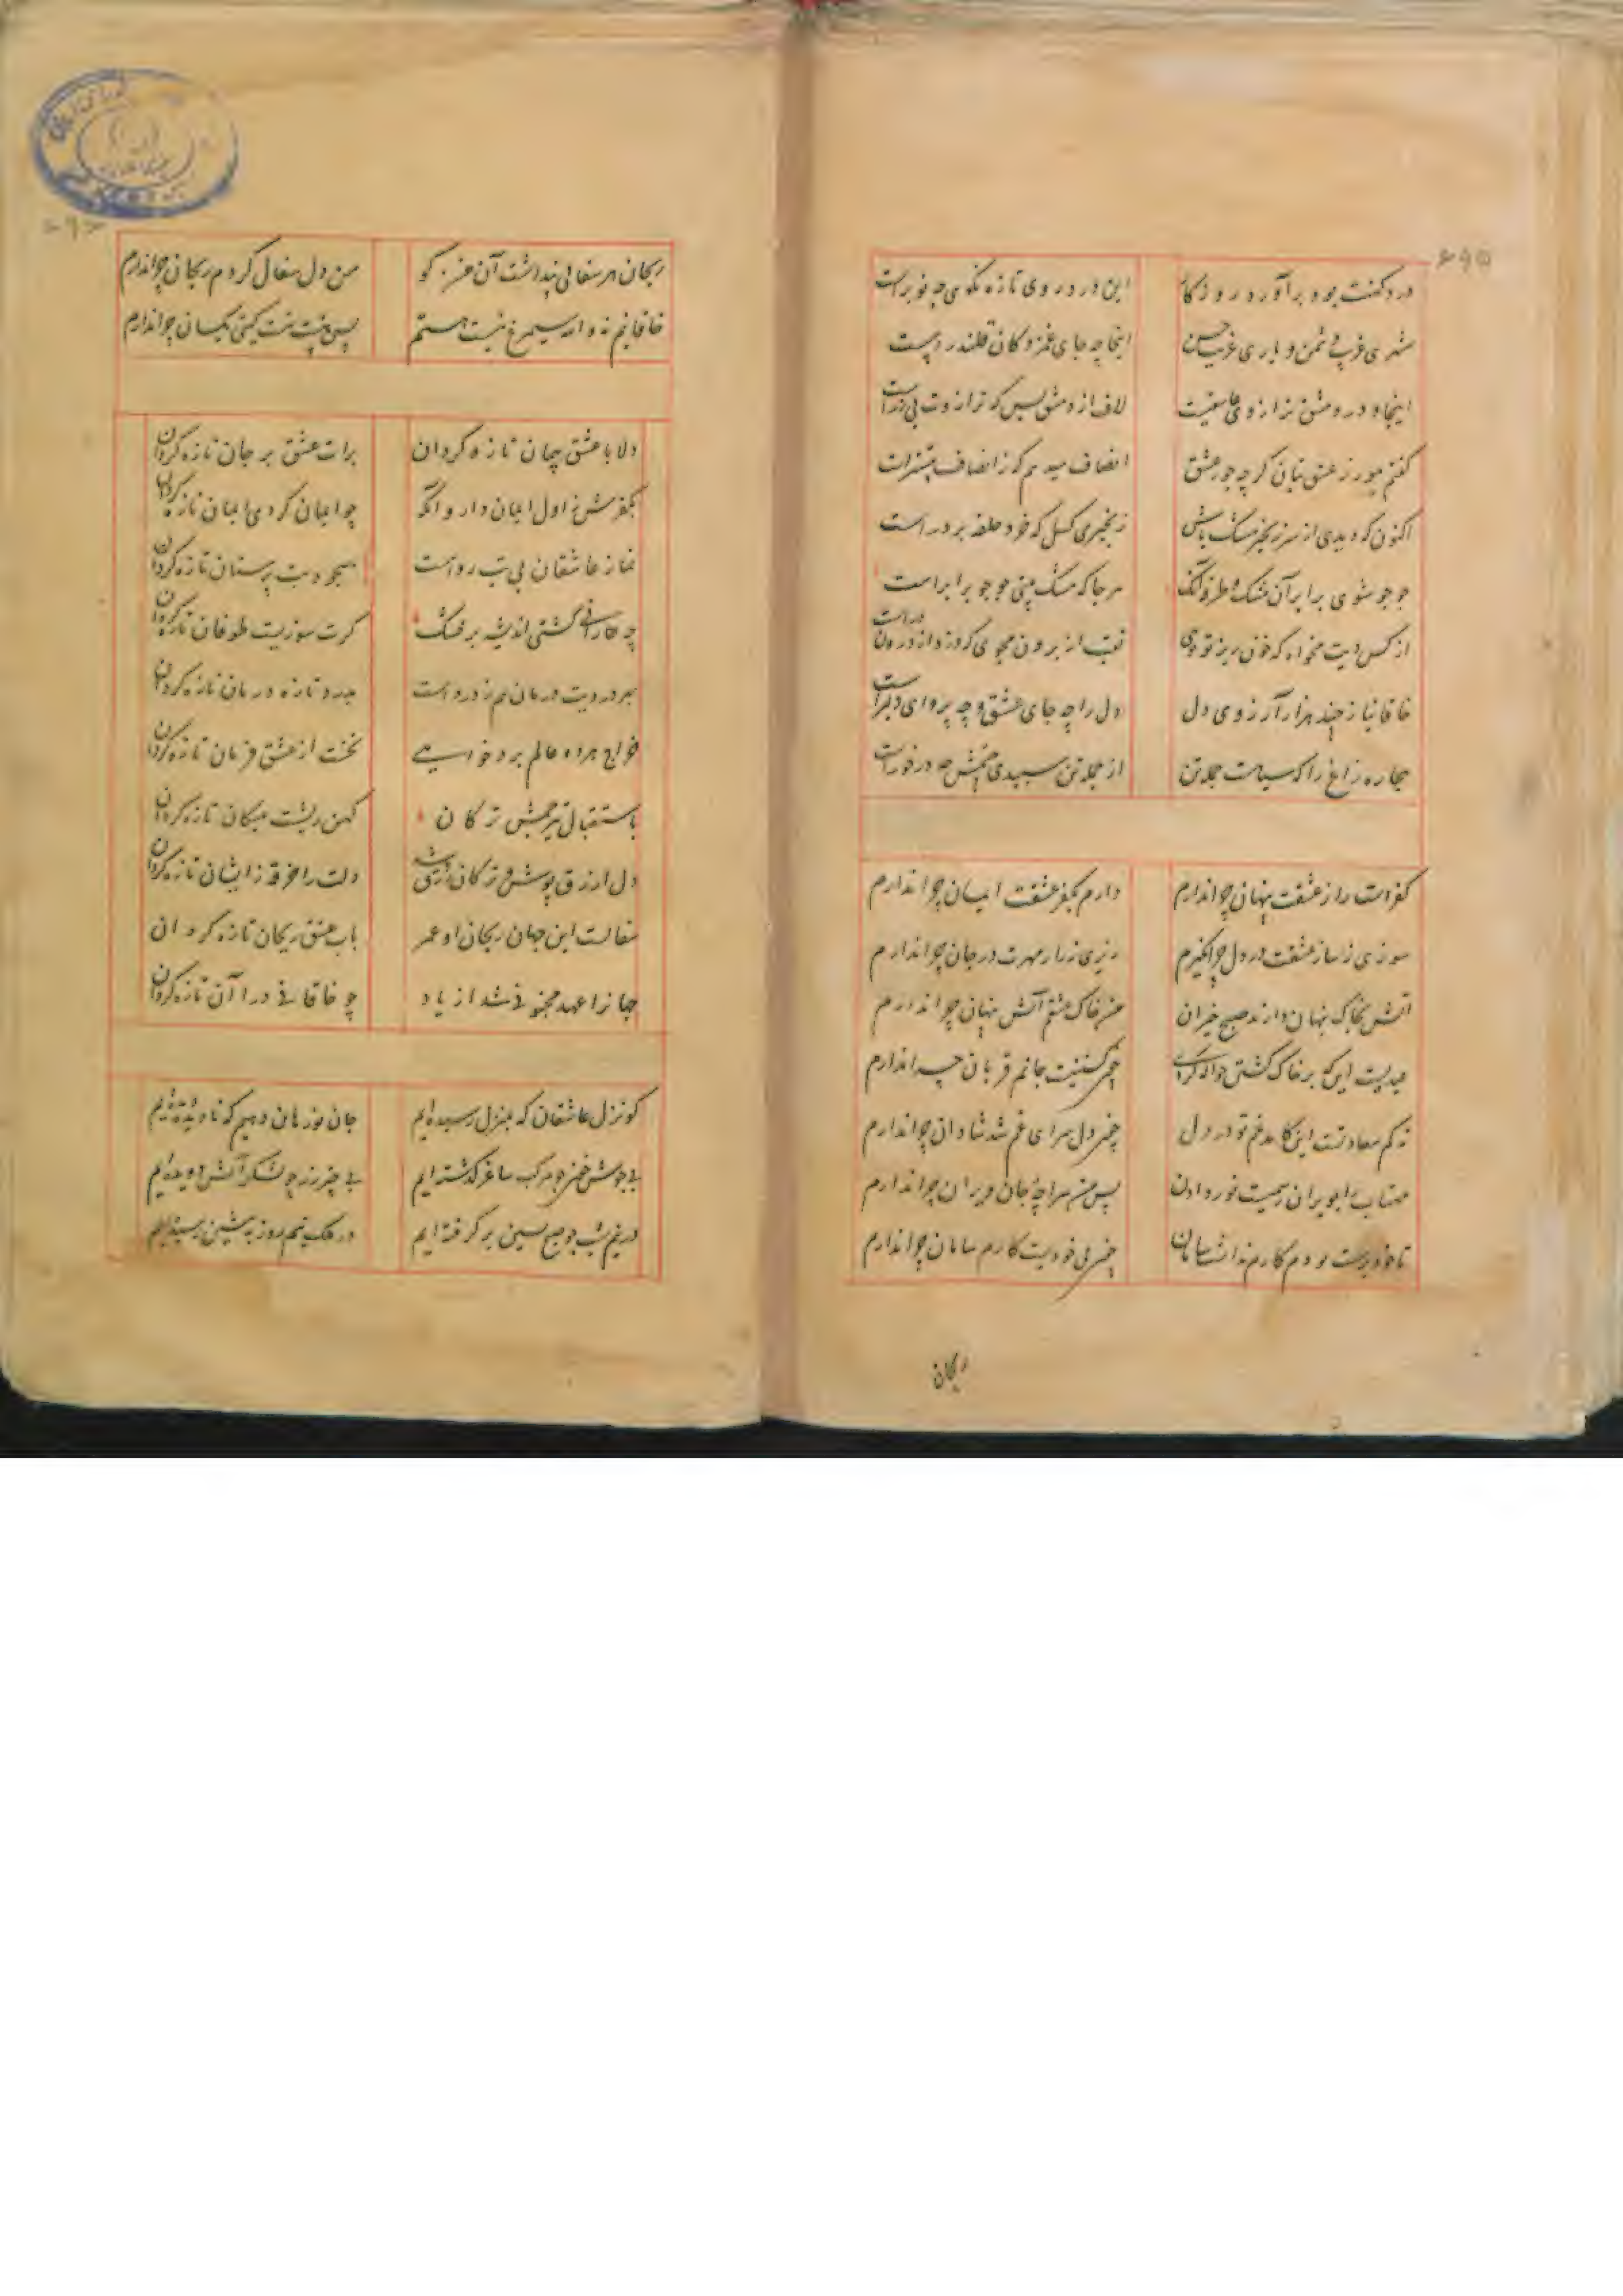 ۶۹۵
درد کهنت بود برآورد روزگار این درد روی تازه نگوی چه نوبر است
شهری غریب دشمن و یاری غریب حسن اینجا چه جای غمزدگان قلندر است
اینجا و در دمشق ترازوی عاشقیست لاف از دمشق بس که ترازوت بی زر است
گفتم بورز عشق بتان گرچه جور عشق انصاف میدهم که ز انصاف بیشتر است
اکنون که دیدی از سر زنجیر مشک پاش زنجیری گسل که خرد حلقه بر در است
جو جو شوی برابر آن مشک و طرفه آنک هرجا که مشک بینی جو جو برابر است
از کس دیت مخواه که خون ریز تو توی نقب از برون مجوی که دزد از درون در است
خاقانیا ز چند هزار آرزوی دل دل را چه جای عشق و چه پروای دلبر است
بیچاره زاغ را که سیاست جمله تن از جمله تن سپیدی چشمش چه درخور است
کفرست راز عشقت پنهان چرا ندارم دارم بکفر عشقت ایمان چرا ندارم
سوزی ز ساز عشقت در دل چرا نگیرم رمزی ز راز مهرت در جان چرا ندارم
آتش بخاک پنهان دارند صبح خیزان من خاک عشقم آتش پنهان چرا ندارم
عیدیست این که بر خاک کشتن حواله کردی چون کشتنیست جانم قربان چرا ندارم
نه کم سعادتست این کامد غم تو در دل چون دل سرای غم شد شادان چرا ندارم
مهتاب را بویران رسمیست نور دادن پس من سراچه جان ویران چرا ندارم
تا خود پرست بودم کارم نداشت سامان چون بی خودیست کارم سامان چرا ندارم
ریحان
ریحان هر سفالی پنداشت آن من کو من دل سفال کردم ریحان چرا ندارم
خاقانیم نه والله سیمرغ نیست هستم پس هست و نیست گیتی یکسان چرا ندارم
دلا با عشق پیمان تازه گردان برات عشق بر جان تازه گردان
بکفرش ز اول ایمان دار و آنگه چو ایمان کردی ایمان تازه گردان
نماز عاشقان بی بت روا نیست سجود بت پرستان تازه گردان
چه رانی کشتی اندیشه بر خشک گرت سوزیست طوفان تازه گردان
بدرد تازه درمان تازه گردان
خراج هر دو عالم برد خواهی نخست از عشق فرمان تازه گردان
باستقبال تیر چشم ترکان کهن ریشت بپیکان تازه گردان
دل ازرق پوش و ترکان دلت را خرقه زایشان تازه گردان
سفالست این جهان ریحان او عمر باب عشق ریحان تازه گردان
جهانرا عهد مجنونی شد از یاد چو خاقانی درا آن تازه گردان
کو نزل عاشقان که بمنزل رسیده ایم جان نورهان دهیم که نادیده دیده ایم
بی جوش خون چو مرکب ساغر گذشته ایم بی چتر زر چو لشکر آتش دویده ایم
در نیم شب چو صبح پسین برگرفته ایم در ملک نیم روز به پیشین رسیده ایم